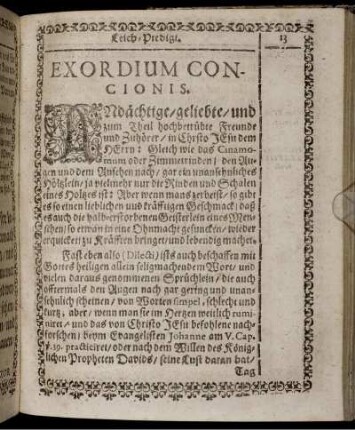 Leich-Predigt. 13
EXORDIUM CON-
CIONIS.
ANdächtige/geliebte/und
zum Theil hochbetrübte Freunde
und Zuhörer/in Christo JEsu dem
HErrn: Gleich wie das Cinamo-
mum oder Zimmetrinden/den Au-
gen und dem Ansehen nach/gar ein unansehnliches
Höltzlein/ja vielmehr nur die Rinden und Schalen
eines Holtzes ist: Aber wenn mans zerbeist/so gibt
es so einen lieblichen und kräfftigen Geschmack/daß
es auch die halberstorbenen Geisterlein eines Men-
schen/so etwan in eine Ohnmacht gesuncken/wieder
erquicken zu Kräfften bringet/und lebendig machet.
Fast eben also (Dilecti) ists auch beschaffen mit
Gottes heiligen allein seligmachendem Wort/und
vielen daraus genommenen Sprüchlein/die auch
offtermals den Augen nach gar gering und unan-
sehnlich scheinen/von Worten simpel/schlecht und
kurtz/aber/wenn man sie im Hertzen weitlich rumi-
niret/und das von Christo JEsu befohlene nach-
forschen/beym Evangelisten Johanne am V. Cap.
v. 39. practiciret/oder nach dem Willen des König-
lichen Propheten Davids/seine Lust daran hat/
Tag